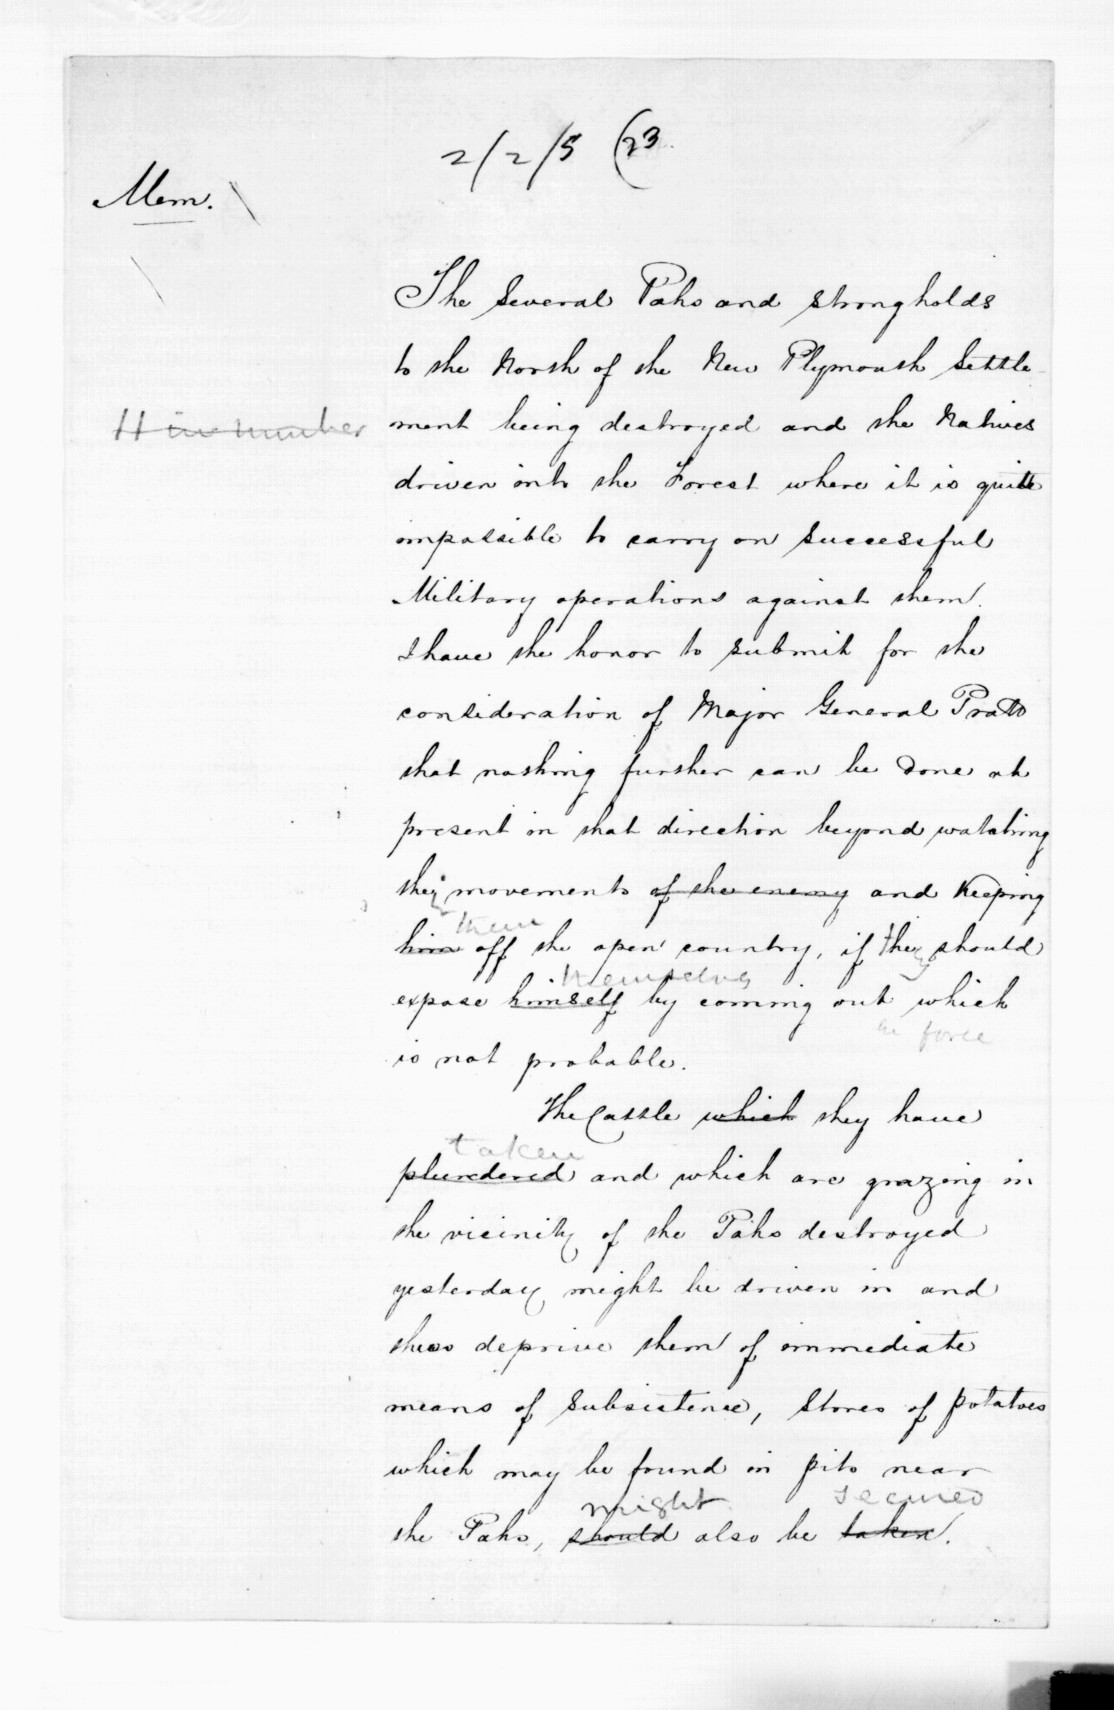 2/2/5 (23
Mem.
The several Pahs and strongholds
to the North of the New Plymouth Settle-
11 in number
ment being destroyed and the Natives
driven into the Forest where it is quite
impossible to carry on successful
Military operations against them.
I have the honor to submit for the
consideration of Major General Pratt
that nothing further can be done at
present in that direction beyond watching
their movements of the enemy and keeping
them
him off the open country, if they should
themselves
expose himself by coming out which
in force
is not probable.
The Cattle which they have
taken
plundered and which are grazing in
the vicinity of the Pahs destroyed
yesterday might be driven in and
thus deprive them of immediate
means of subsistence, stores of potatoes
which may be found in pits near
might secured
the Pahs, should also be taken.